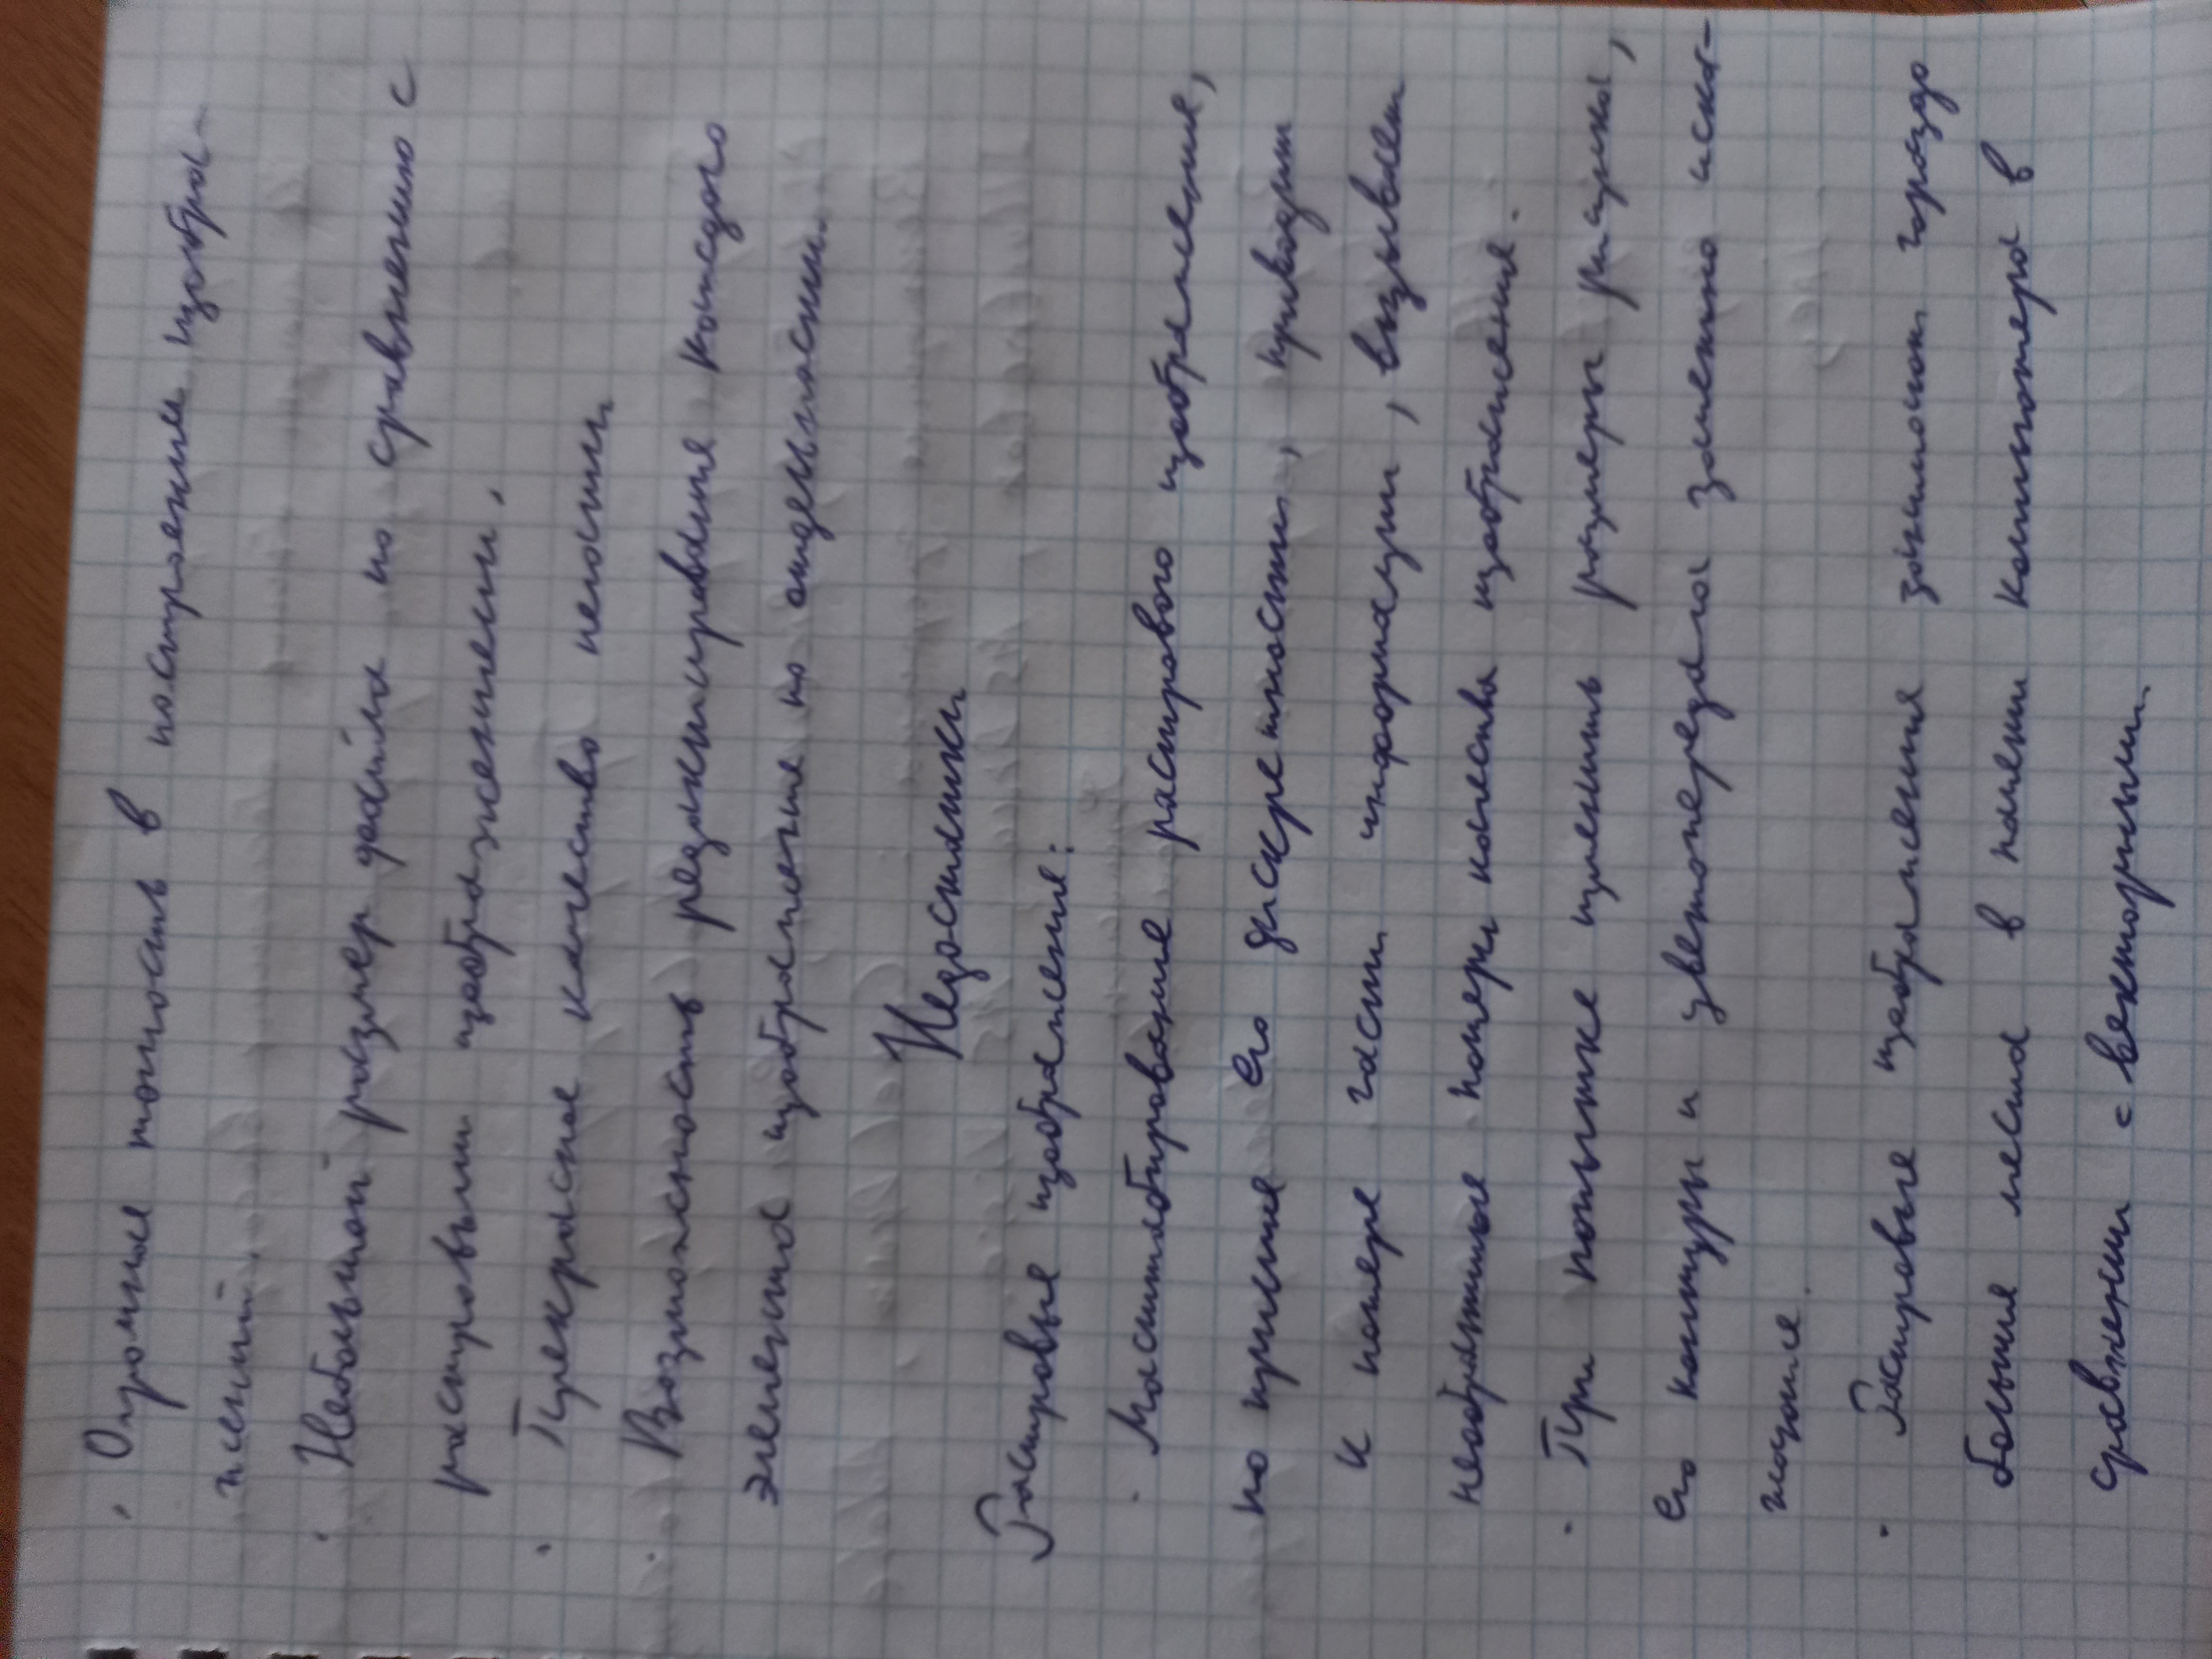 · Огромные точность в построение изобра-
жений.
· Небольшой размер файла по сравнению с
растровыми изображениями.
· Прекрасное качество печати
· Возможность редактирования каждого
элемента изображение по отдельности.
Недостатки
Растровые изображение:
· Масштабирование растрового изображения,
по причине его дискретности, приводит
к потере части информации, вызывает
необратимые потери качества изображения.
· При попытке изменить размеры рисунка,
его контуры и цветопередача заметно иска-
жающие.
· Растровые изображения занимают гораздо
больше места в памяти компьютера в
сравнении с векторными.